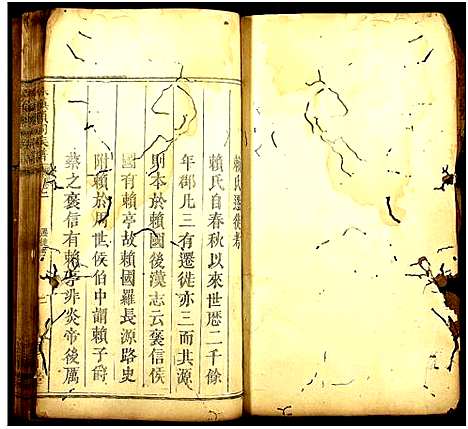 賴氏遷徙考
賴氏自春秋以來世歷二千餘
年郡凡三有遷徙亦三而其源
則本於賴國後漢志云褒信侯
國有賴亭故賴國羅長源路史
附賴於周世侯伯中謂賴子爵
蔡之褒信有賴亭非炎帝後厲